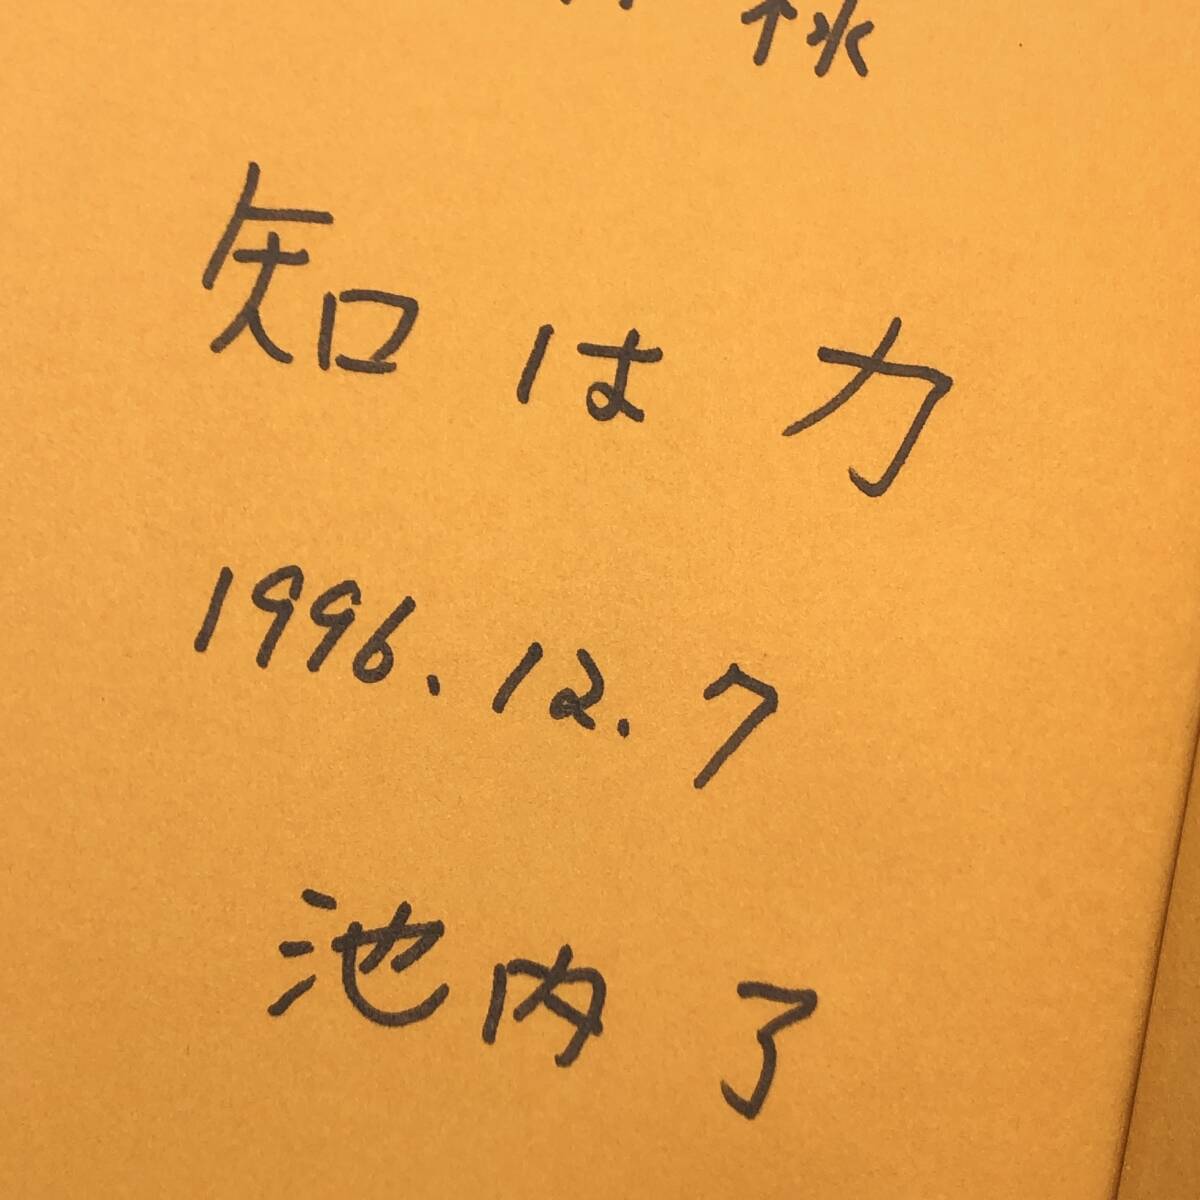 知は力
1996.12.7
池内了